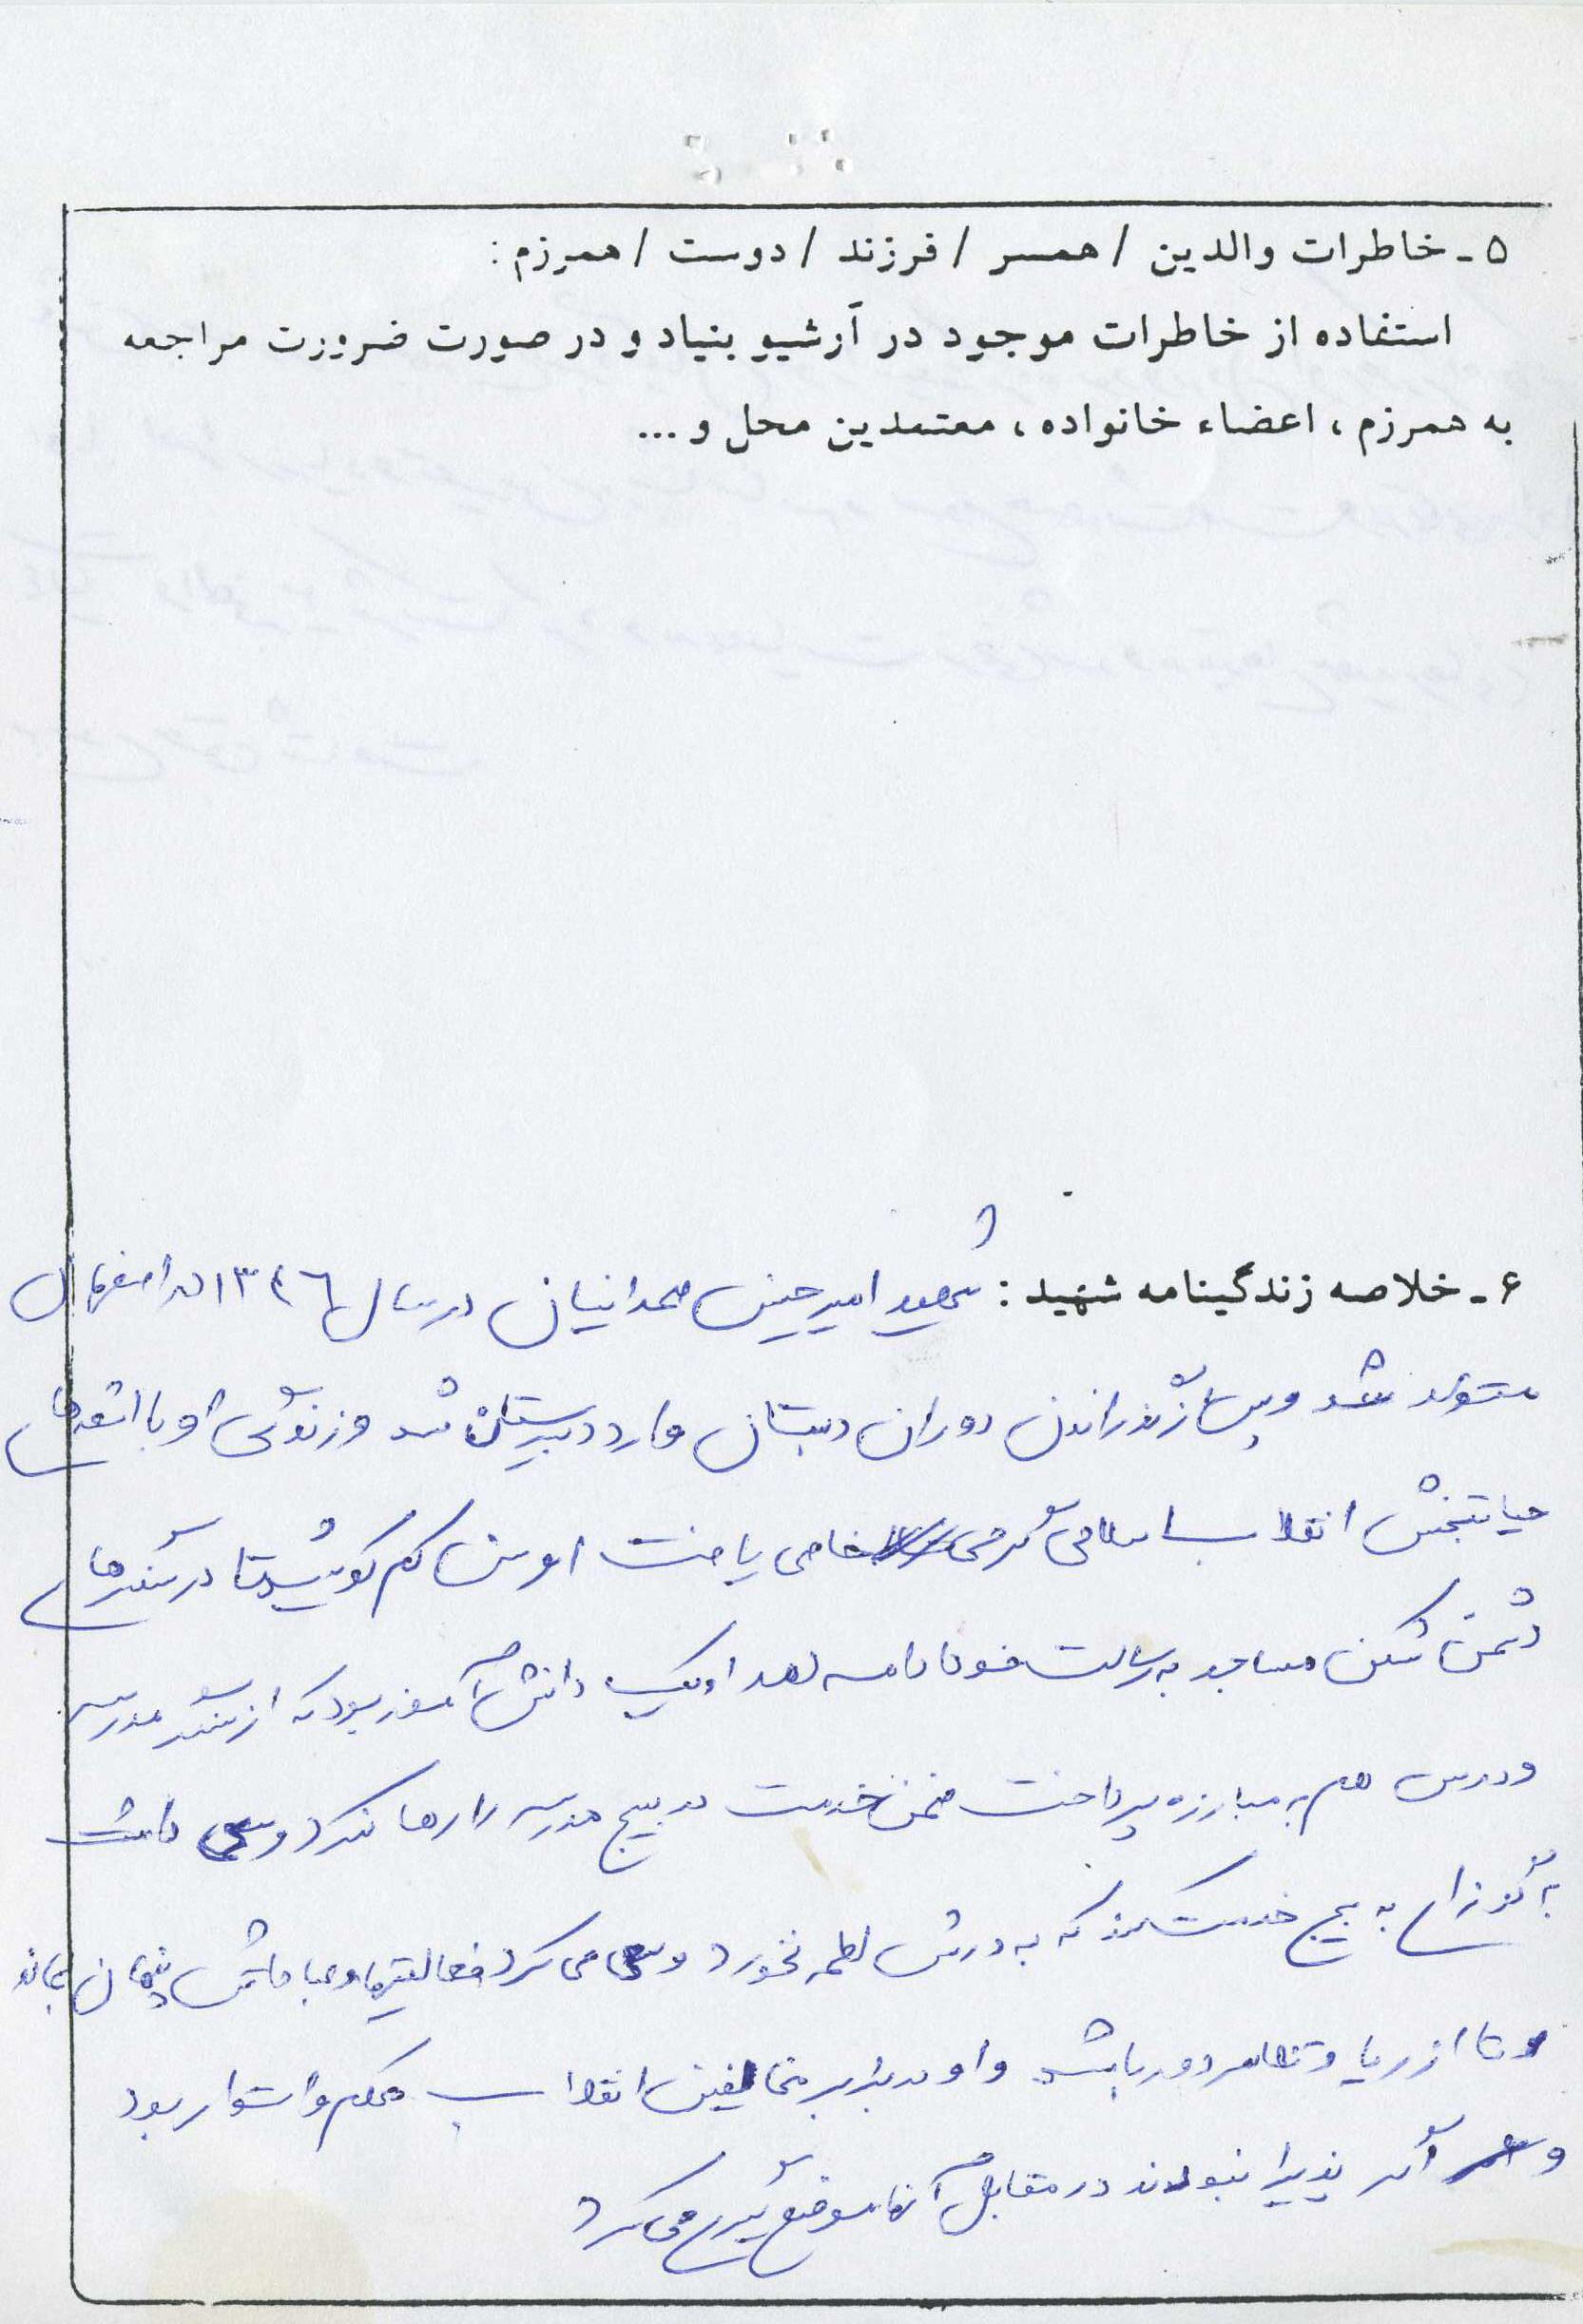 ۵ - خاطرات والدین / همسر / فرزند / دوست / همرزم :
استفاده از خاطرات موجود در آرشیو بنیاد و در صورت ضرورت مراجعه
به همرزم ، اعضاء خانواده ، معتمدین محل و ...
۶ - خلاصه زندگینامه شهید : شهید امیرحسین همدانیان در سال ۱۳۴۶ در اصفهان
متولد شد و پس از گذراندن دوران دبستان وارد دبیرستان شد و زندگی او با شعله‌های
حیاتبخش انقلاب اسلامی گرمی خاصی یافت او سن کم کوشید تا در سنگرهای
دشمن شکن مساجد به رسالت خود ادامه دهد او یک دانش آموز بود که از سنگر مدرسه
و درس هم به مبارزه پرداخت ضمن خدمت در بسیج مدرسه را رها نکرد و سعی داشت
به گونه‌ای به بسیج خدمت کند که به درسش لطمه نخورد و سعی می کرد فعالیتها و عباداتش پنهان بماند
و تا از ریا و تظاهر دور باشد و او در برابر مخالفین انقلاب محکم و استوار بود
و اگر پذیرا نبودند در مقابل آنها موضع گیری می کرد